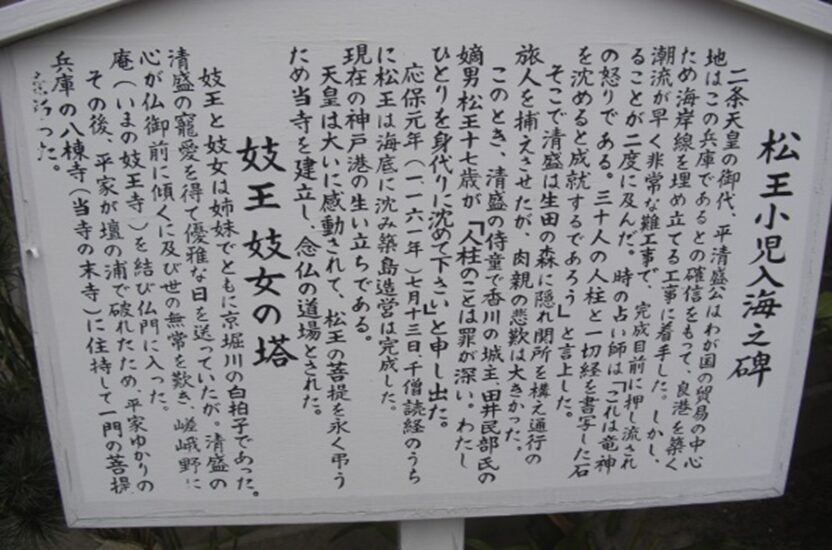 松王小児入海之碑
二条天皇の御代、平清盛公はわが国の貿易の中心
地はこの兵庫であるとの確信をもって、良港を築く
ため海岸線を埋め立てる工事に着手した。しかし、
潮流が早く非常な難工事で、完成目前に押し流され
ることが二度に及んだ。時の占い師は「これは竜神
の怒りである。三十人の人柱と一切経を書写した石
を沈めると成就するであろう」と言上した。
そこで清盛は生田の森に隠れ関所を構え通行の
旅人を捕えさせたが、肉親の悲歎は大きかった。
このとき、清盛の侍童で香川の城主、田井民部氏の
嫡男松王十七歳が「人柱のことは罪が深い。わたし
ひとりを身代りに沈めて下さい」と申し出た。
応保元年(一、一六一年)七月十三日、千僧読経のうち
に松王は海底に沈み築島造営は完成した。
現在の神戸港の生い立ちである。
天皇は大いに感動されて、松王の菩提を永く弔う
ため当寺を建立し、念仏の道場とされた。
妓王 妓女の塔
妓王と妓女は姉妹でともに京堀川の白拍子であった。
清盛の寵愛を得て優雅な日を送っていたが。清盛の
心が仏御前に傾くに及び世の無常を歎き、嵯峨野に
庵(いまの妓王寺)を結び仏門に入った。
その後、平家が壇の浦で破れたため、平家ゆかりの
兵庫の八棟寺(当寺の末寺)に住持して一門の菩提
った。